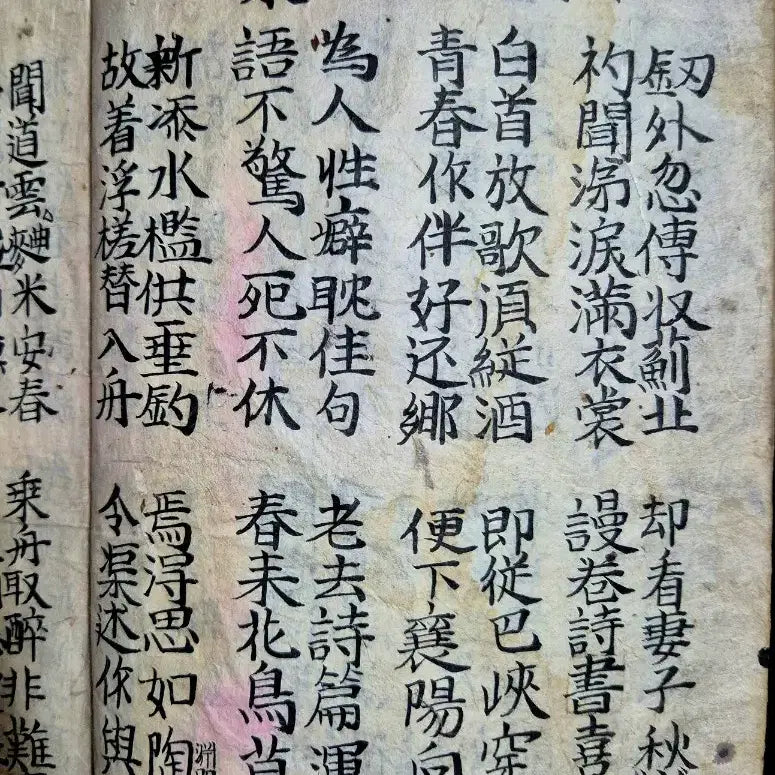 釼外忽傳収薊北
初聞涕淚滿衣裳
却看妻子
謾卷詩書喜
白首放歌湏縦酒
青春作伴好还鄉
即従巴峽穿
便下襄陽向
為人性癖耽佳句
語不驚人死不休
老去詩篇渾
春来花鳥
新添水檻供垂釣
故着浮槎替入舟
焉得思如陶
令渠述作與
聞道雲麯米安春
乗舟取醉非難